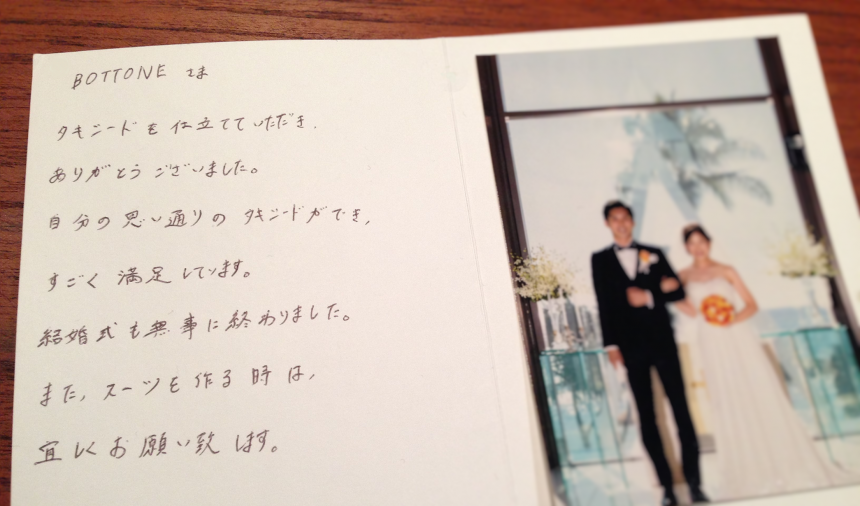 BOTTONE さま
タキシードを仕立てていただき、
ありがとうございました。
自分の思い通りのタキシードができ、
すごく満足しています。
結婚式も無事に終わりました。
また、スーツを作る時は、
宜しくお願い致します。